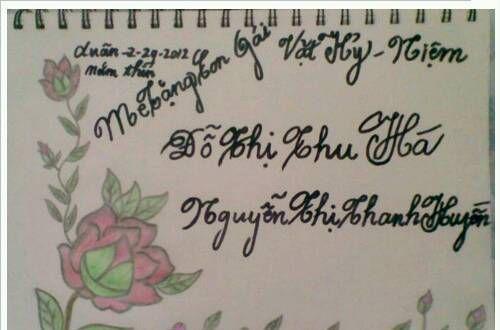 xuân -2-29-2012
năm thìn
Mẹ tặng con gái
Vật Kỷ - Niệm
Đỗ Thị Thu Hà
Nguyễn Thị Thanh Huyền